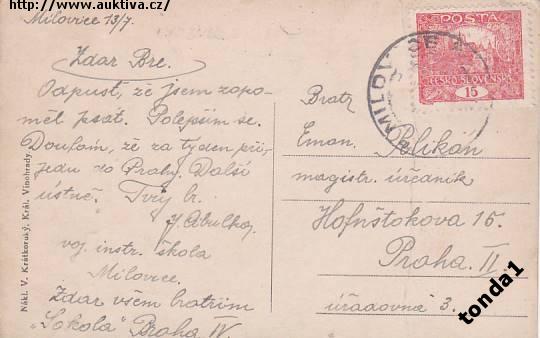 ( www.auktiva.cz )
Milovice 13/7.
Zdar Bre.
Odpusť, že jsem zapo-
měl psát. Polepším se.
Doufám, že za týden přij-
jedu do Prahy. Další
ústně. Tvůj br.
J.
voj. instr. škola
Milovice.
Zdar všem bratřím
"Sokola" Praha IV.
Nákl. V. Krátkoruký, Král. Vinohrady
POSTA
ČESKO-SLOVENSKÁ
15
MILOVICE
Bratr
Eman. Pelikán
magistr. úředník
Hofnštokova 15.
Praha. II
úřadovna 3.
tonda1